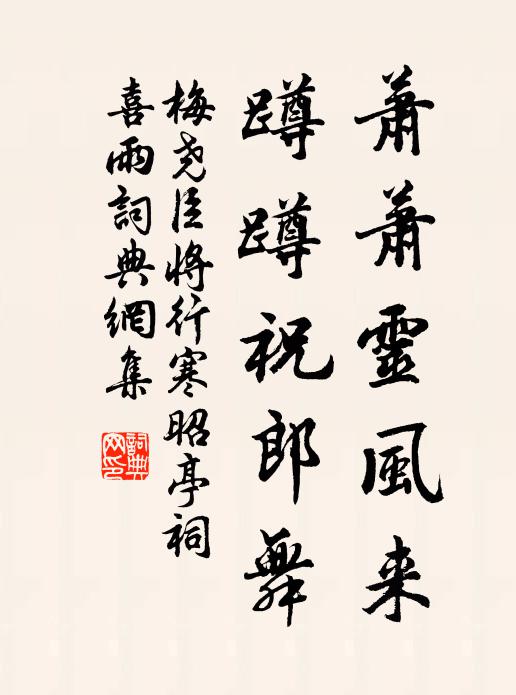 蕭蕭靈風来
蹲蹲祝郎舞
梅尧臣將行寒昭亭祠
喜雨詞典網集
詞典
网印